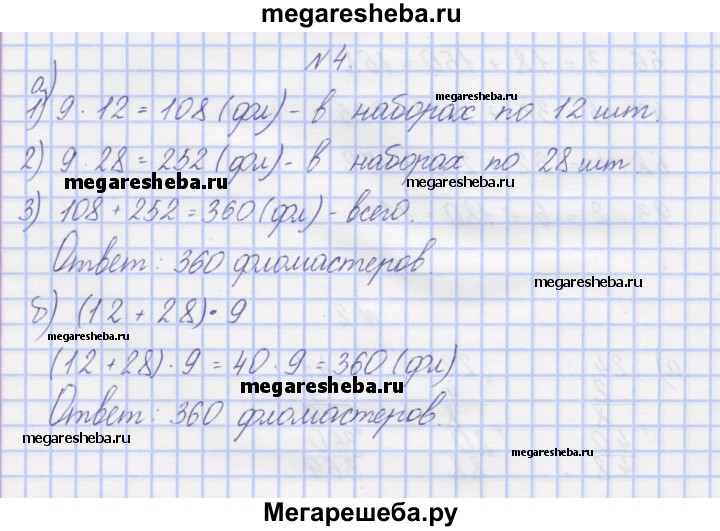 megaresheba.ru
№4.
а)
1) 9 · 12 = 108 (фл) - в наборах по 12 шт.
megaresheba.ru
2) 9 · 28 = 252 (фл) - в наборах по 28 шт.
megaresheba.ru
megaresheba.ru
3) 108 + 252 = 360 (фл) - всего.
Ответ: 360 фломастеров.
megaresheba.ru
б) (12 + 28) · 9
megaresheba.ru
(12 + 28) · 9 = 40 · 9 = 360 (фл)
megaresheba.ru
Ответ: 360 фломастеров.
megaresheba.ru
megaresheba.ru
Мегарешеба.ру